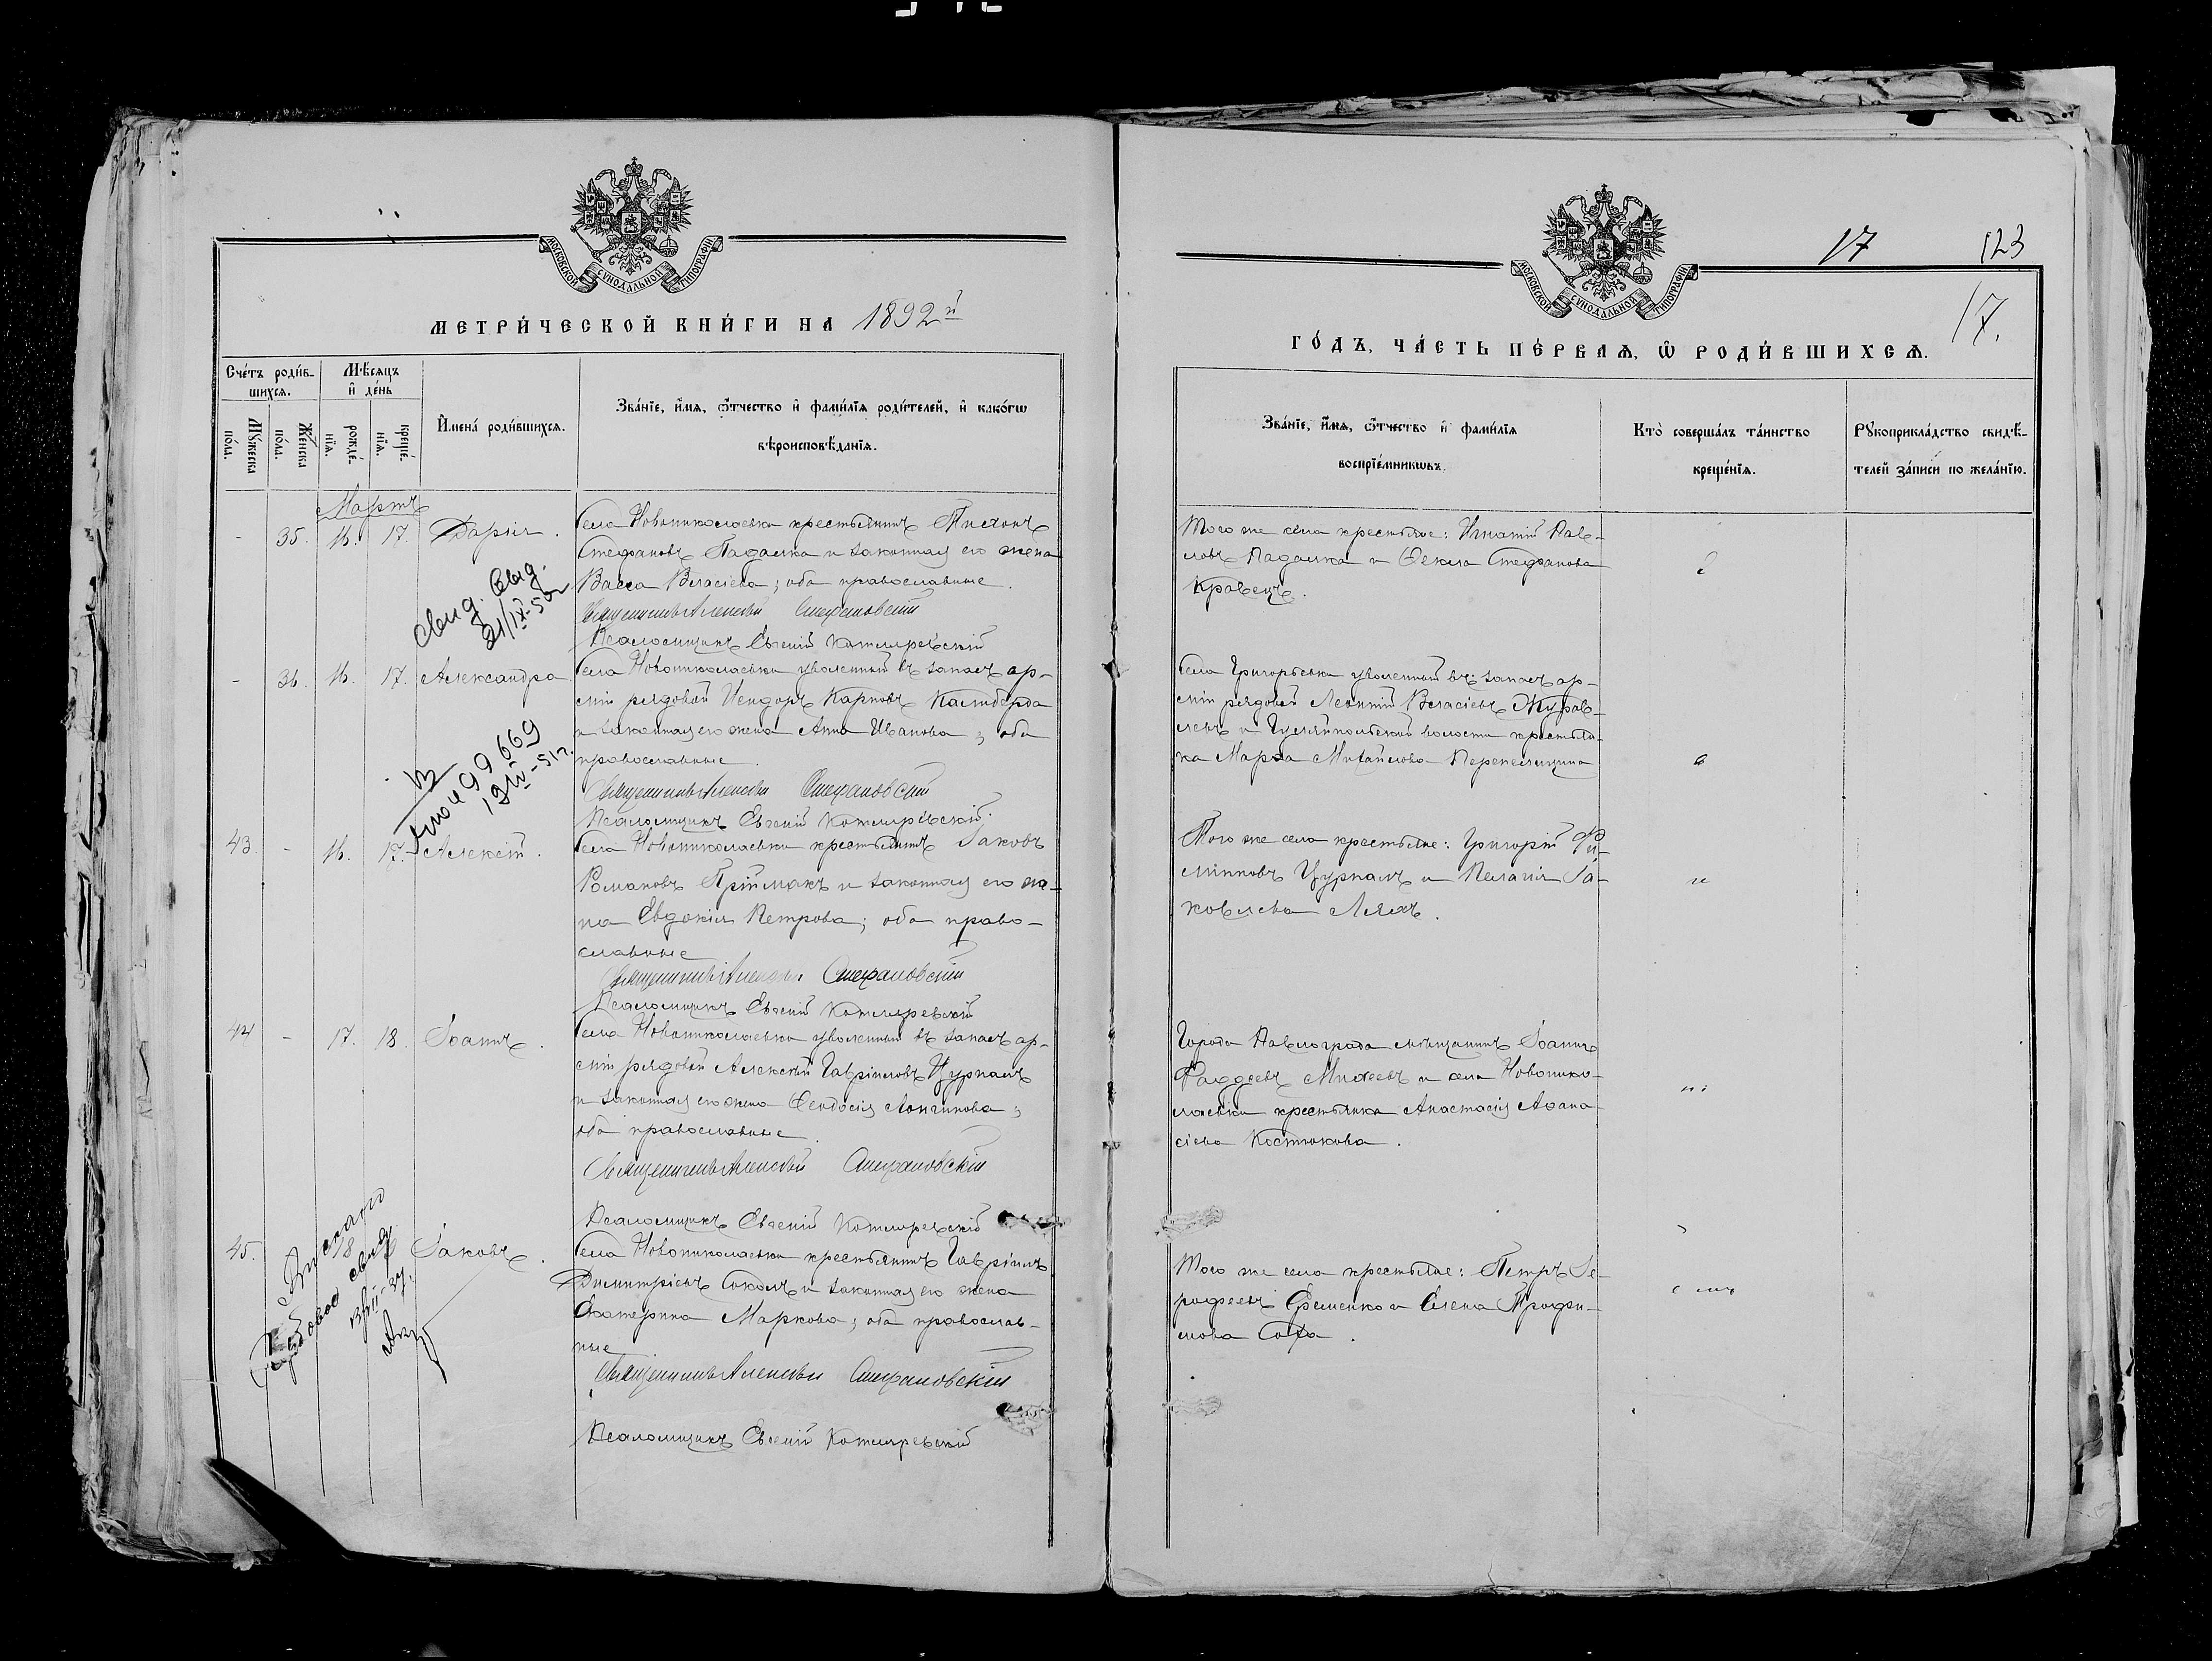 МОСКОВСКОЙ СѴНОДАЛЬНОЙ ТИПОГРАФІИ
МЕТРИ́ЧЕСКОЙ КНИ́ГИ НА 1892й
Сче́тъ роди́в-
шихся.
Мѣ́сяцъ
и҆ де́нь
Мꙋ́жеска
по́ла.
Же́нска
по́ла.
рожде́-
нїѧ.
креще́-
нїѧ.
И҆мена̀ роди́вшихся.
Зва́нїе, и҆́мѧ, ѻ҆́тчество и҆ фами́лїѧ роди́телей, и҆ како́гѡ
вѣроисповѣ́данїѧ.
Мартъ
- 35. 16. 17. Дарія.
Села Новониколаевки крестьянинъ Тихонъ
Стефановъ Падалка и законная его жена
Васса Власіева; оба православные.
Священникъ Алексѣй Стефановскій
Псаломщикъ Евгеній Котляревскій
Свид.
21/IX-5
- 36. 16. 17. Александра.
Села Новониколаевки уволенный въ запасъ ар-
міи рядовой Исидоръ Карповъ
и законная его жена Анна Иванова; оба
православные.
Священникъ Алексѣй Стефановскій
Псаломщикъ Евгеній Котляревскій.
99669
43. - 16. 17. Алексій.
Села Новониколаевки крестьянинъ Іаковъ
Романовъ Пріймакъ и законная его же-
на Евдокія Петрова; оба право-
славные
Священникъ Алексѣй Стефановскій
Псаломщикъ Евгеній Котляревскій
44 - 17. 18. Іоаннъ.
Села Новониколаевки уволенный въ запасъ ар-
міи рядовой Алексѣй Гавріиловъ Цуркалъ
и законная его жена Феодосія Лонгинова;
оба православные.
Священникъ Алексѣй Стефановскій
Псаломщикъ Евгеній Котляревскій
45. 18 Іаковъ.
Села Новониколаевки крестьянинъ Гавріилъ
Димитріевъ Соколъ и законная его жена
Екатерина Маркова; оба православ-
ные
Священникъ Алексѣй Стефановскій
Псаломщикъ Евгеній Котляревскій
17 123
17.
МОСКОВСКОЙ СѴНОДАЛЬНОЙ ТИПОГРАФІИ
ГО́ДЪ, ЧА́СТЬ ПЕ́РВАѦ, Ѡ҆ РОДИ́ВШИХСѦ.
Зва́нїе, и҆́мѧ, ѻ҆́тчество и҆ фами́лїѧ
воспрїе́мникѡвъ.
Кто̀ соверша́лъ та́инство
креще́нїѧ.
Рꙋкоприкла́дство свидѣ́-
телей за́писи по жела́нїю.
Того же села крестьяне: Игнатій Пав-
ловъ Падалка и Фекла Стефанова
Кравецъ.
Села Григорьевки уволенный въ запасъ ар-
міи рядовой Леонтій Власіевъ Журав-
левъ и Гуляйпольской волости крестьян-
ка Марѳа Михайлова Перепелицина
Того же села крестьяне: Григорій Фи-
липповъ Цуркалъ и Пелагія Іа-
ковлева Ляхъ.
Города Павлограда мѣщанинъ Іоаннъ
Фаддеевъ Михеевъ и села Новонико-
лаевки крестьянка Анастасія Аѳана-
сіева Костюкова.
Того же села крестьяне: Петръ Іе-
рофеевъ Еременко и Елена Трофи-
мова Соха.